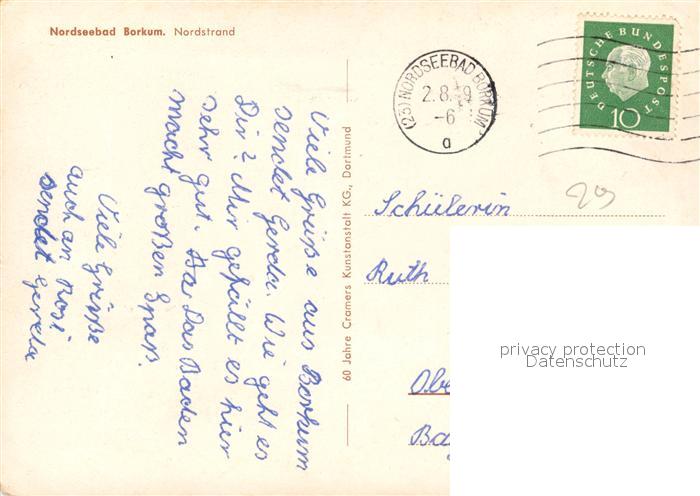 Nordseebad Borkum. Nordstrand
Viele Grüße aus Borkum
sendet Gerda. Wie geht es
Dir? Mir gefällt es hier
sehr gut. Da Das Baden
macht großen Spaß.
Viele Grüße
auch an Rosi
sendet Gerda
60 Jahre Cramers Kunstanstalt KG., Dortmund
(23) NORDSEEBAD BORKUM
2.8.
-6
a
DEUTSCHE BUNDESPOST
10
Schülerin
Ruth
privacy protection
Datenschutz